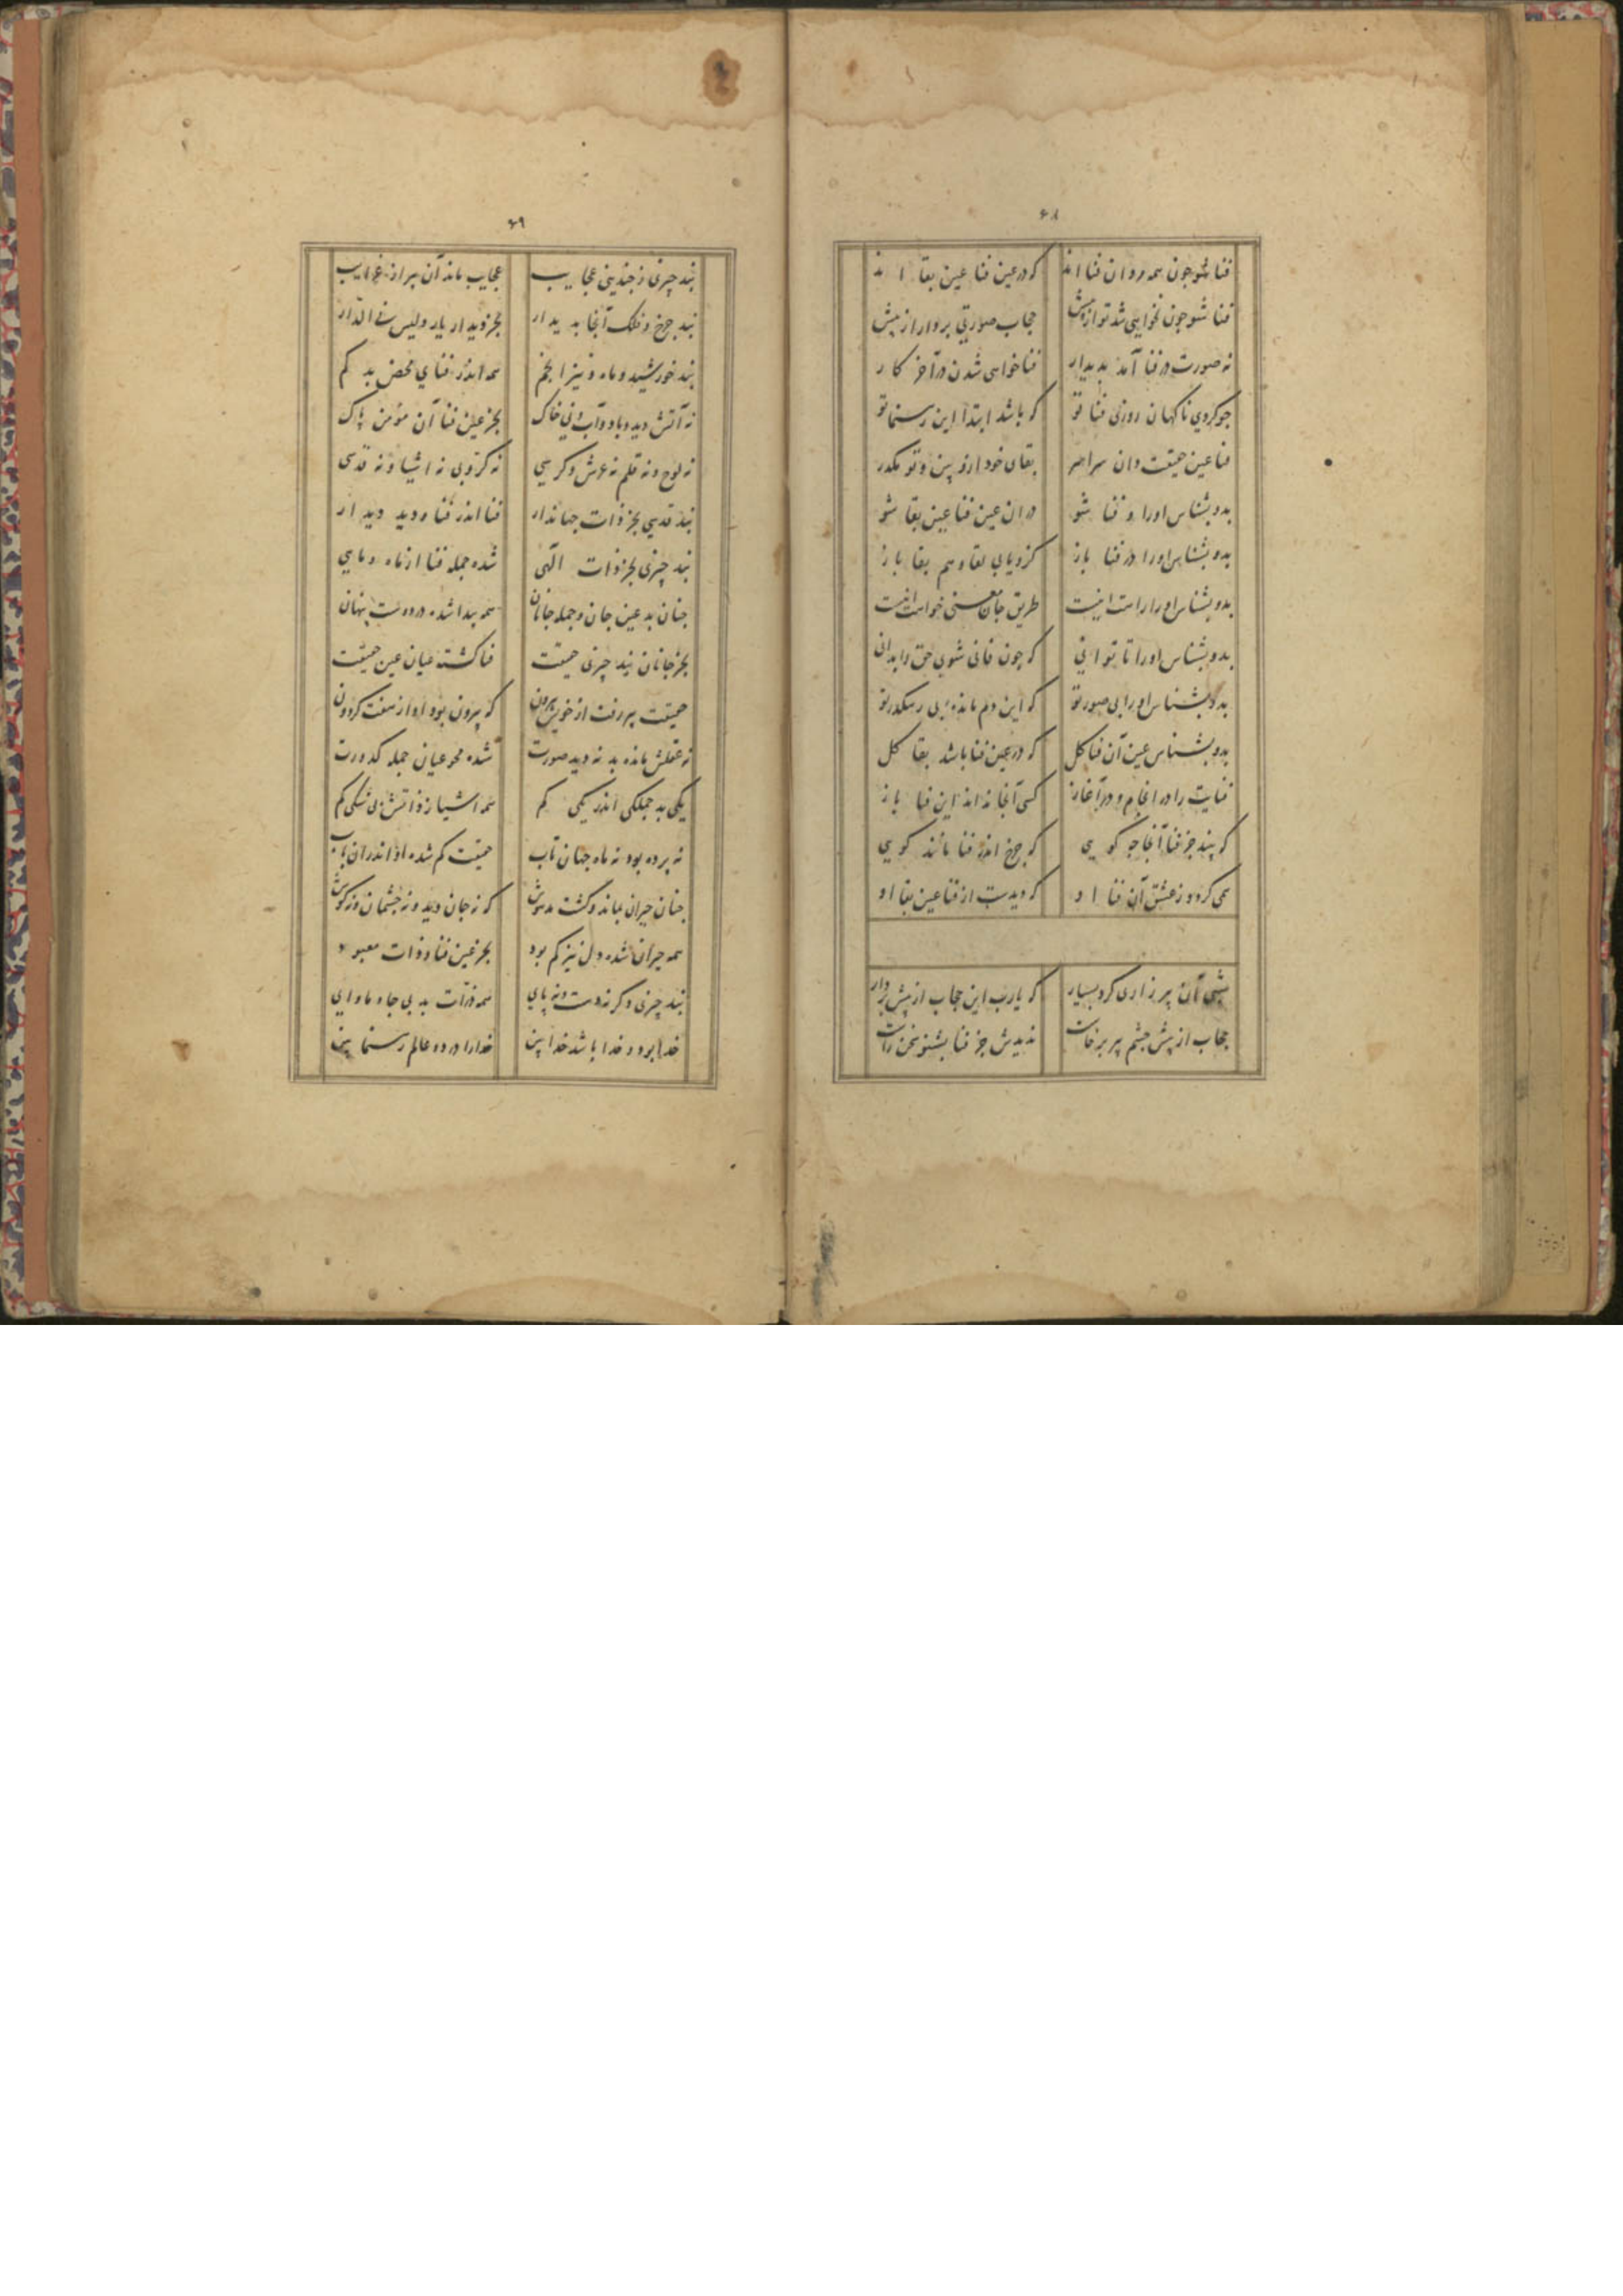 ۶۸
فنا شو چون همه مردان فنا اند که در عین فنا عین بقا اند
فنا شو چون نخواهی شد تو از پیش حجاب صورتی بردار از پیش
نه صورت در فنا آمد بدیدار فنا خواهی شدن در آخر کار
چو کردی ناکهان روزی فنا تو که باشد ابتدا این رهنما تو
فنا عین حقیقت دان سراسر بقای خود ازو بین و تو مگذر
بدو بشناس او را و فنا شو در ان عین فنا عین بقا شو
بدو بشناس او را در فنا باز کزو یابی لقا و هم بقا باز
بدو بشناس او را راست اینست طریق جان معنی خواست اینست
بدو بشناس او را تا توانی که چون فانی شوی حق را بدانی
بدو بشناس او را بی صور تو که این دم مانده‌ای بی رهگذر تو
بدو بشناس عین آن فنا کل که در عین فنا باشد بقا کل
فنایت را در انجام و در آغاز کسی آنجا نداند این فنا باز
که بیند جز فنا آنجا چه کویی که چرخ اندر فنا ماند کویی
همی کردد ز عشق آن فنا او که دیدست از فنا عین بقا او
شبی آن پیر زاری کرد بسیار که یارب این حجاب از پیش بردار
حجاب از پیش چشم پیر برخاست ندیدش جز فنا بشنو سخن راست
۶۹
نبد چیزی ز چندینی عجایب عجایب ماند آن پیر از غرایب
نبد چرخ و فلک آنجا بدیدار بجز دیدار یار و لیس فی الدار
نبد خورشید و ماه و نیز انجم همه اندر فنای محض بد کم
نه آتش دید و باد و آب و نی خاک بجز عین فنا آن مؤمن پاک
نه لوح و نه قلم نه عرش و کرسی نه کروبی نه اشیا و نه قدسی
نبد قدسی بجز ذات جهاندار فنا اندر فنا و دید دیدار
نبد چیزی بجز ذات الهی شده جمله فنا از ماه و ماهی
چنان بد عین جان و جمله جانان همه پیدا شده در دوست پنهان
بجز جانان نبد چیزی حقیقت فنا کشته عیان عین حقیقت
حقیقت پیر رفت از خویش بیرون که بیرون بود او از هفت کردون
نه عقلش مانده بد نه دید صورت شده محو عیان جمله کدورت
یکی بد جملگی اندر یکی کم همه اشیا ز ذاتش بی شکی کم
نه پرده بود نه ماه جهان تاب حقیقت کم شده او اندران باب
چنان حیران بماند و کشت مدهوش که نه جان دید و نه چشمان و نه کوش
همه حیران شده دل نیز کم بود بجز عین فنا و ذات معبود
نبد چیزی دکر نه دست و نه پای همه ذرات بد بی جا و ماوای
خدا بود و خدا باشد خدا بین خدا را در دو عالم رهنما بین